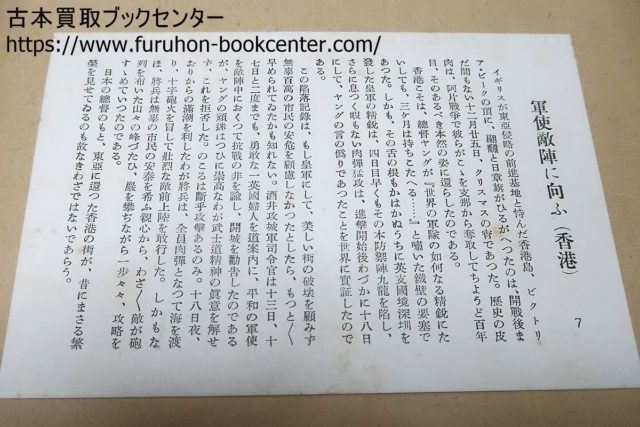 古本買取ブックセンター
https://www.furuhon-bookcenter.com/
軍使敵陣に向ふ（香港）
7
イギリスが東亞侵略の前進基地と恃んだ香港島、ビクトリ
ア・ピークの頂に、翩翻と日章旗がひるがへつたのは、開戰後ま
だ間もない十二月廿五日、クリスマスの宵であつた。歷史の皮
肉は、阿片戰爭で彼らがこゝを支那から奪取してちようど百年
目、そのあるべき本然の姿に還らしたのである。
香港こそは、總督ヤングが『世界の軍隊の如何なる精銳にた
いしても、三ケ月は持ちこたへる……』と囁いた鐵壁の要塞で
あつた。しかも、その舌の根もかはかぬうちに英支國境深圳を
發した皇軍の精銳は、四日目早くもその本防禦陣九龍を陷し、
さらに息つく暇もない肉彈猛攻は、進擊開始後わづかに十八日
にして、ヤングの言の僞りであつたことを世界に實証したので
ある。
この陷落記錄は、もし皇軍にして、美しい街の破壞を顧みず
無辜百萬の市民の安危を顧慮しなかつたとしたら、もつと〱
早められてゐたかも知れない。酒井攻城軍司令官は十三日、十
七日と二度までも、勇敢な一英國婦人を道案内に、平和の軍使
を敵陣中におくつて抗戰の非を論し、開城を勸告したのである
が、ヤングの頑迷はつひに崇高なわが武士道精神の眞意を解せ
ず、これを拒否した。のこるは斷乎攻擊あるのみ。十八日夜、
おりからの滿潮を利したわが將兵は、全員肉彈となつて海を渡
り、十字砲火を冒して壯烈な敵前上陸を敢行した。しかもな
ほ、將兵は無辜の市民の安泰を希ふ親心から、わざ〱敵が砲
列を布いた山々の峰づたひ、巖を攀ぢながら一步々々、攻略を
すゝめていつたのである。
日本の總督のもと、東亞に還つた香港の街が、昔にまさる繁
榮を見せてゐるのも故なきわざではないであらう。